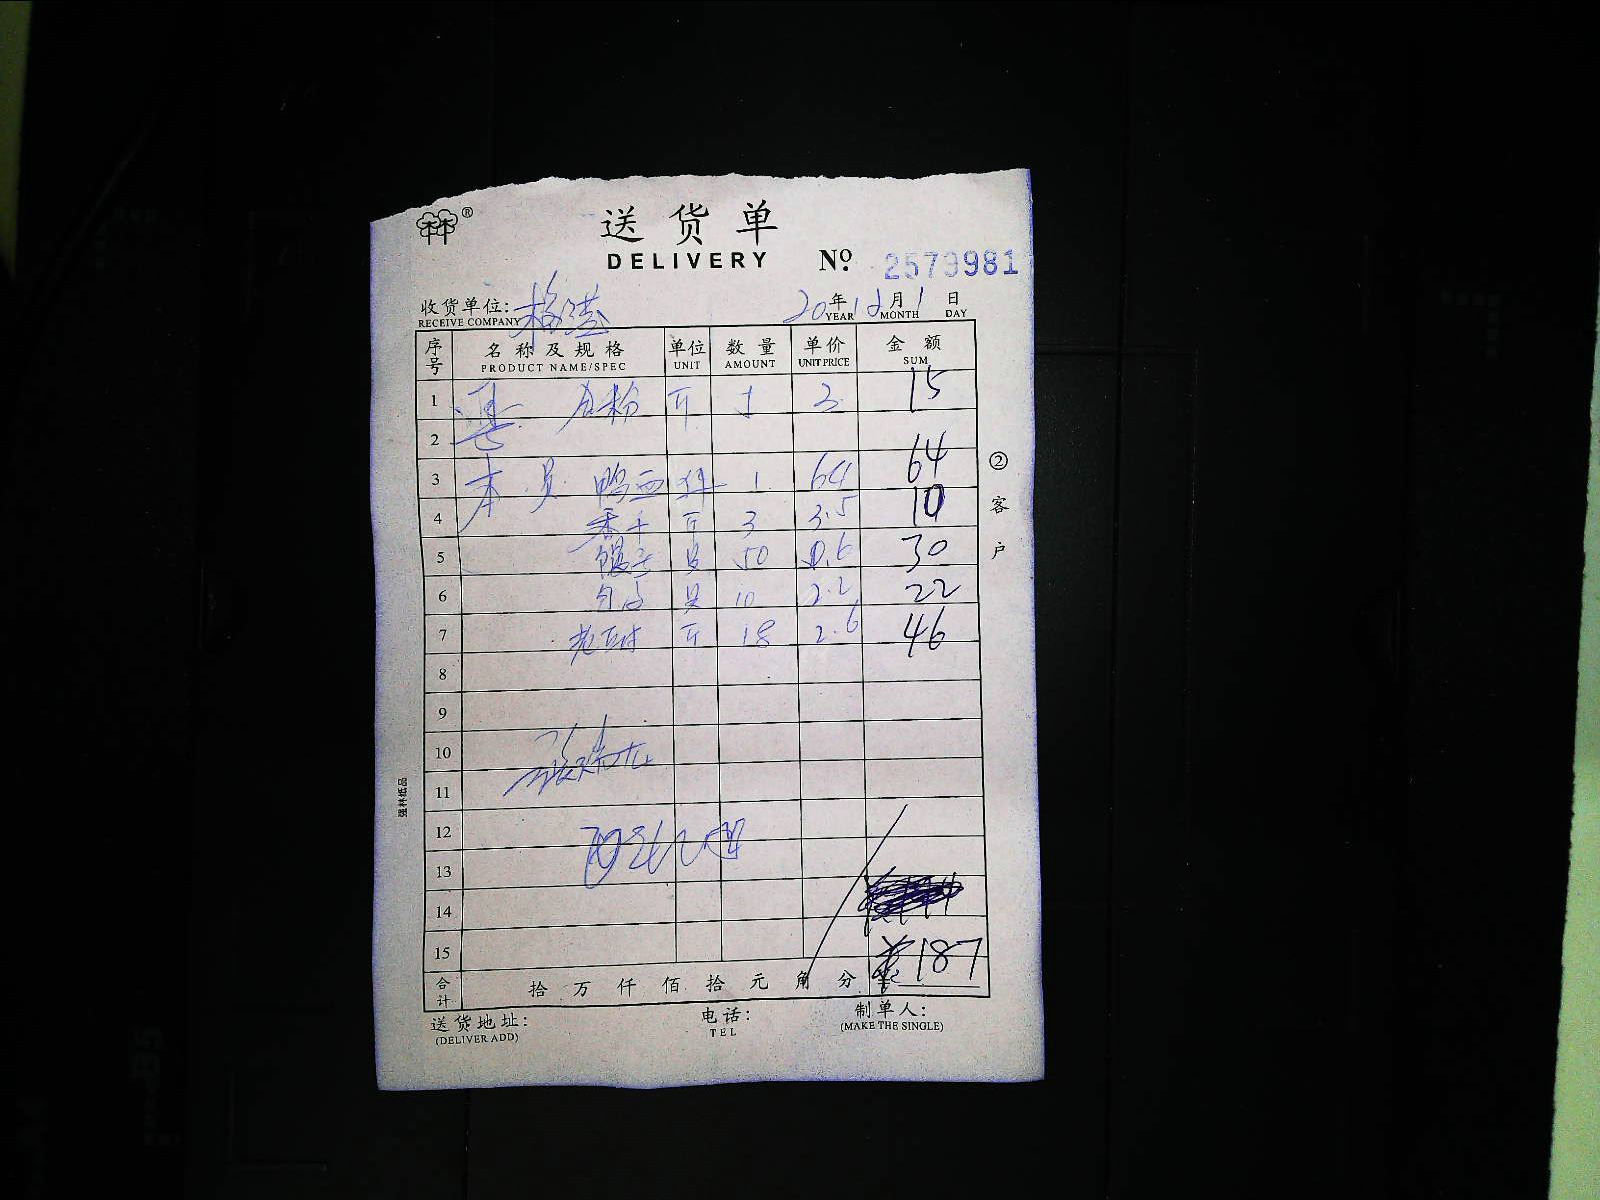 ®
送货单
DELIVERY No. 2579981
收货单位: 20年12月1日
RECEIVE COMPANY YEAR MONTH DAY
序号 名称及规格 单位 数量 单价 金额
PRODUCT NAME/SPEC UNIT AMOUNT UNIT PRICE SUM
1 斤 3 15
2
3 鸭血 件 1 64 64
4 香干 斤 3 3.5 10
5 50 0.6 30
6 10 2.2 22
7 斤 18 2.6 46
8
9
10
11
12
13
14
15 ¥187
合计 拾 万 仟 佰 拾 元 角 分 ¥:
送货地址: 电话: 制单人:
(DELIVER ADD) TEL (MAKE THE SINGLE)
②客户
强林纸品